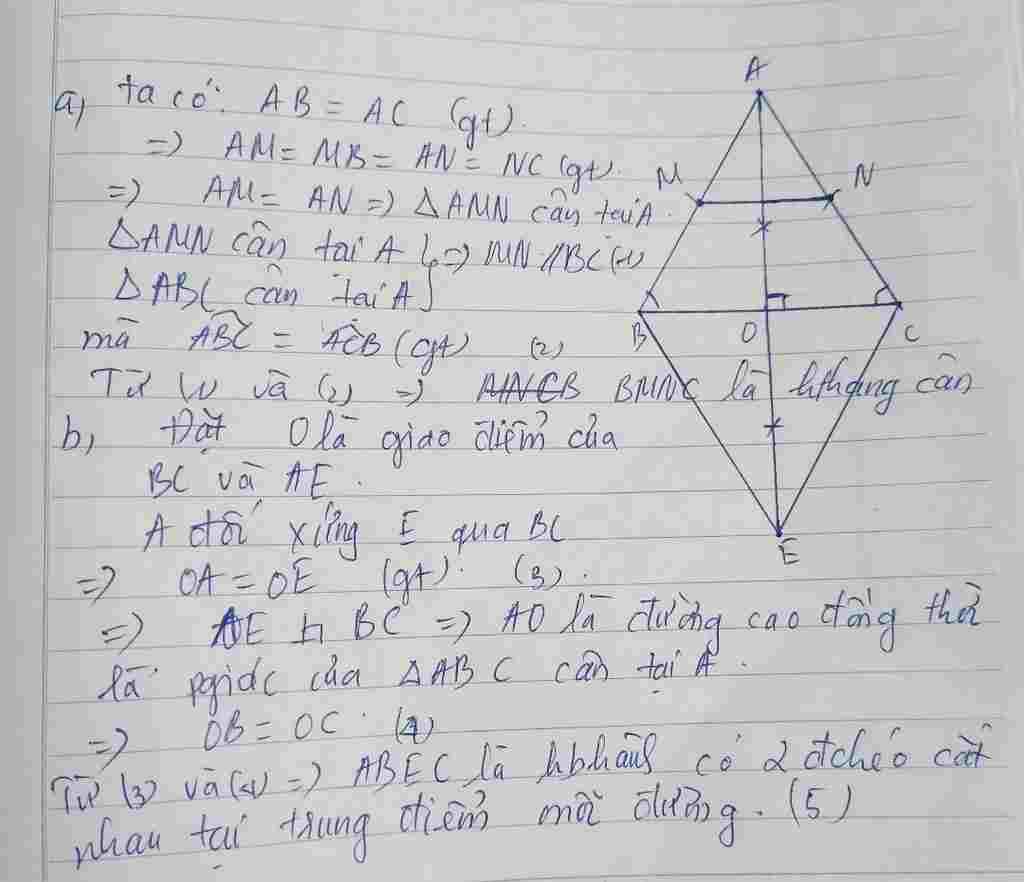 a, ta có: AB = AC (gt).
=> AM = MB = AN = NC (gt).
=> AM = AN => ΔAMN cân tại A.
ΔAMN cân tại A } => MN // BC (1)
ΔABC cân tại A }
mà ABC = ACB (gt) (2)
Từ (1) và (2) => BMNC là hthang cân
b, Đặt O là giao điểm của
BC và AE.
A đối xứng E qua BC
=> OA = OE (gt). (3).
=> AE ⊥ BC => AO là đường cao đồng thời
là pgiác của ΔABC cân tại A.
=> OB = OC. (4)
Từ (3) và (4) => ABEC là hbhành có 2 đchéo cắt
nhau tại trung điểm mỗi đường. (5)
A
M
N
B
O
C
E